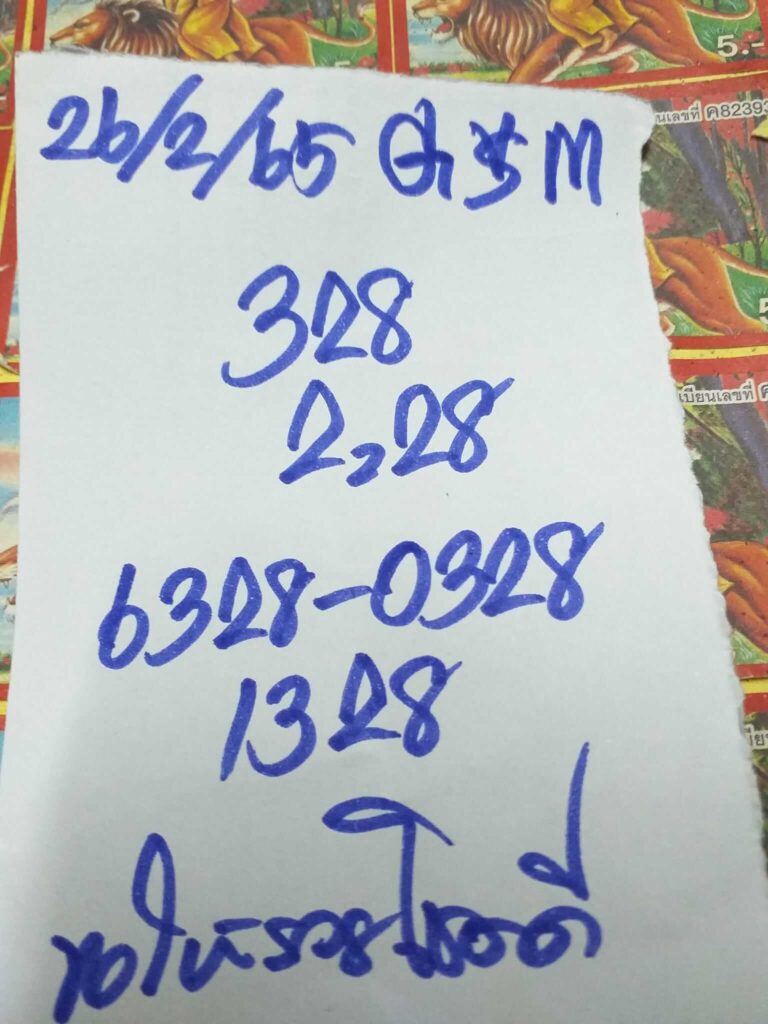 5.-
นเลขที่ ค82393
26/2/65
328
2,28
เบียนเลขที่
6328-0328
1328
ขอให้รวยโชคดี